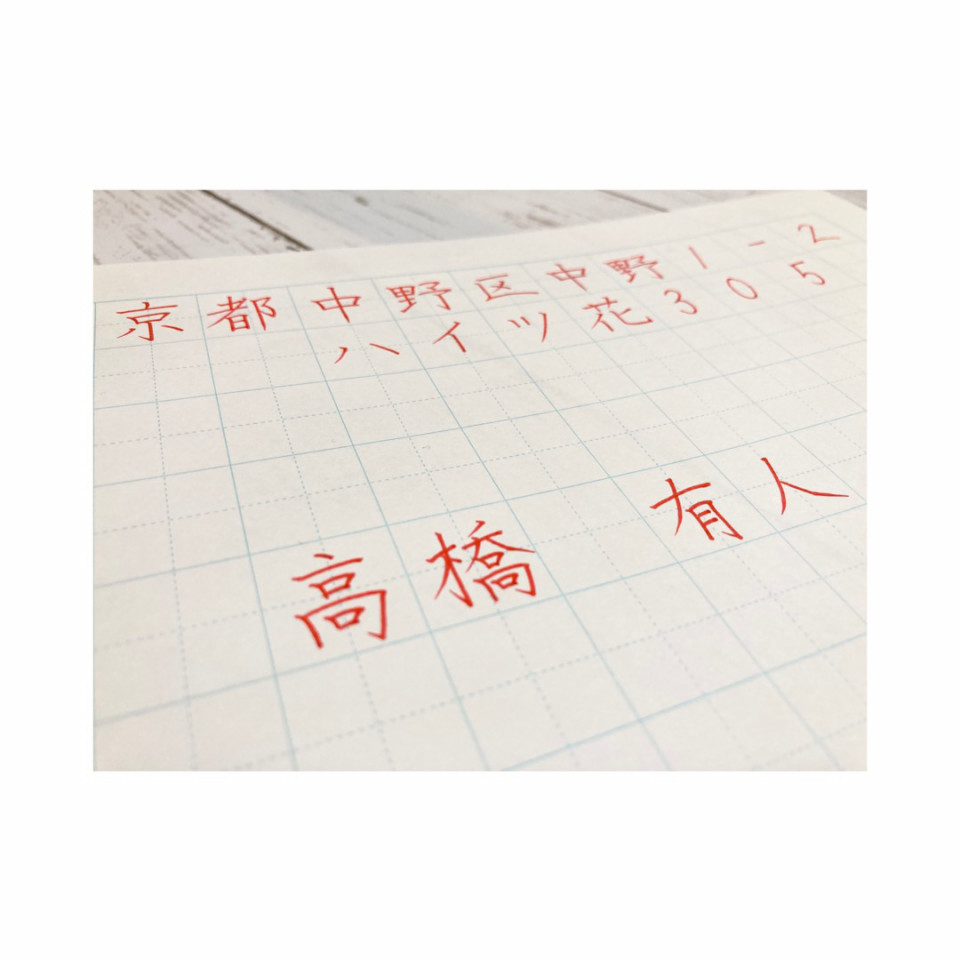 京都中野区中野1-2
ハイツ花305
高橋 有人